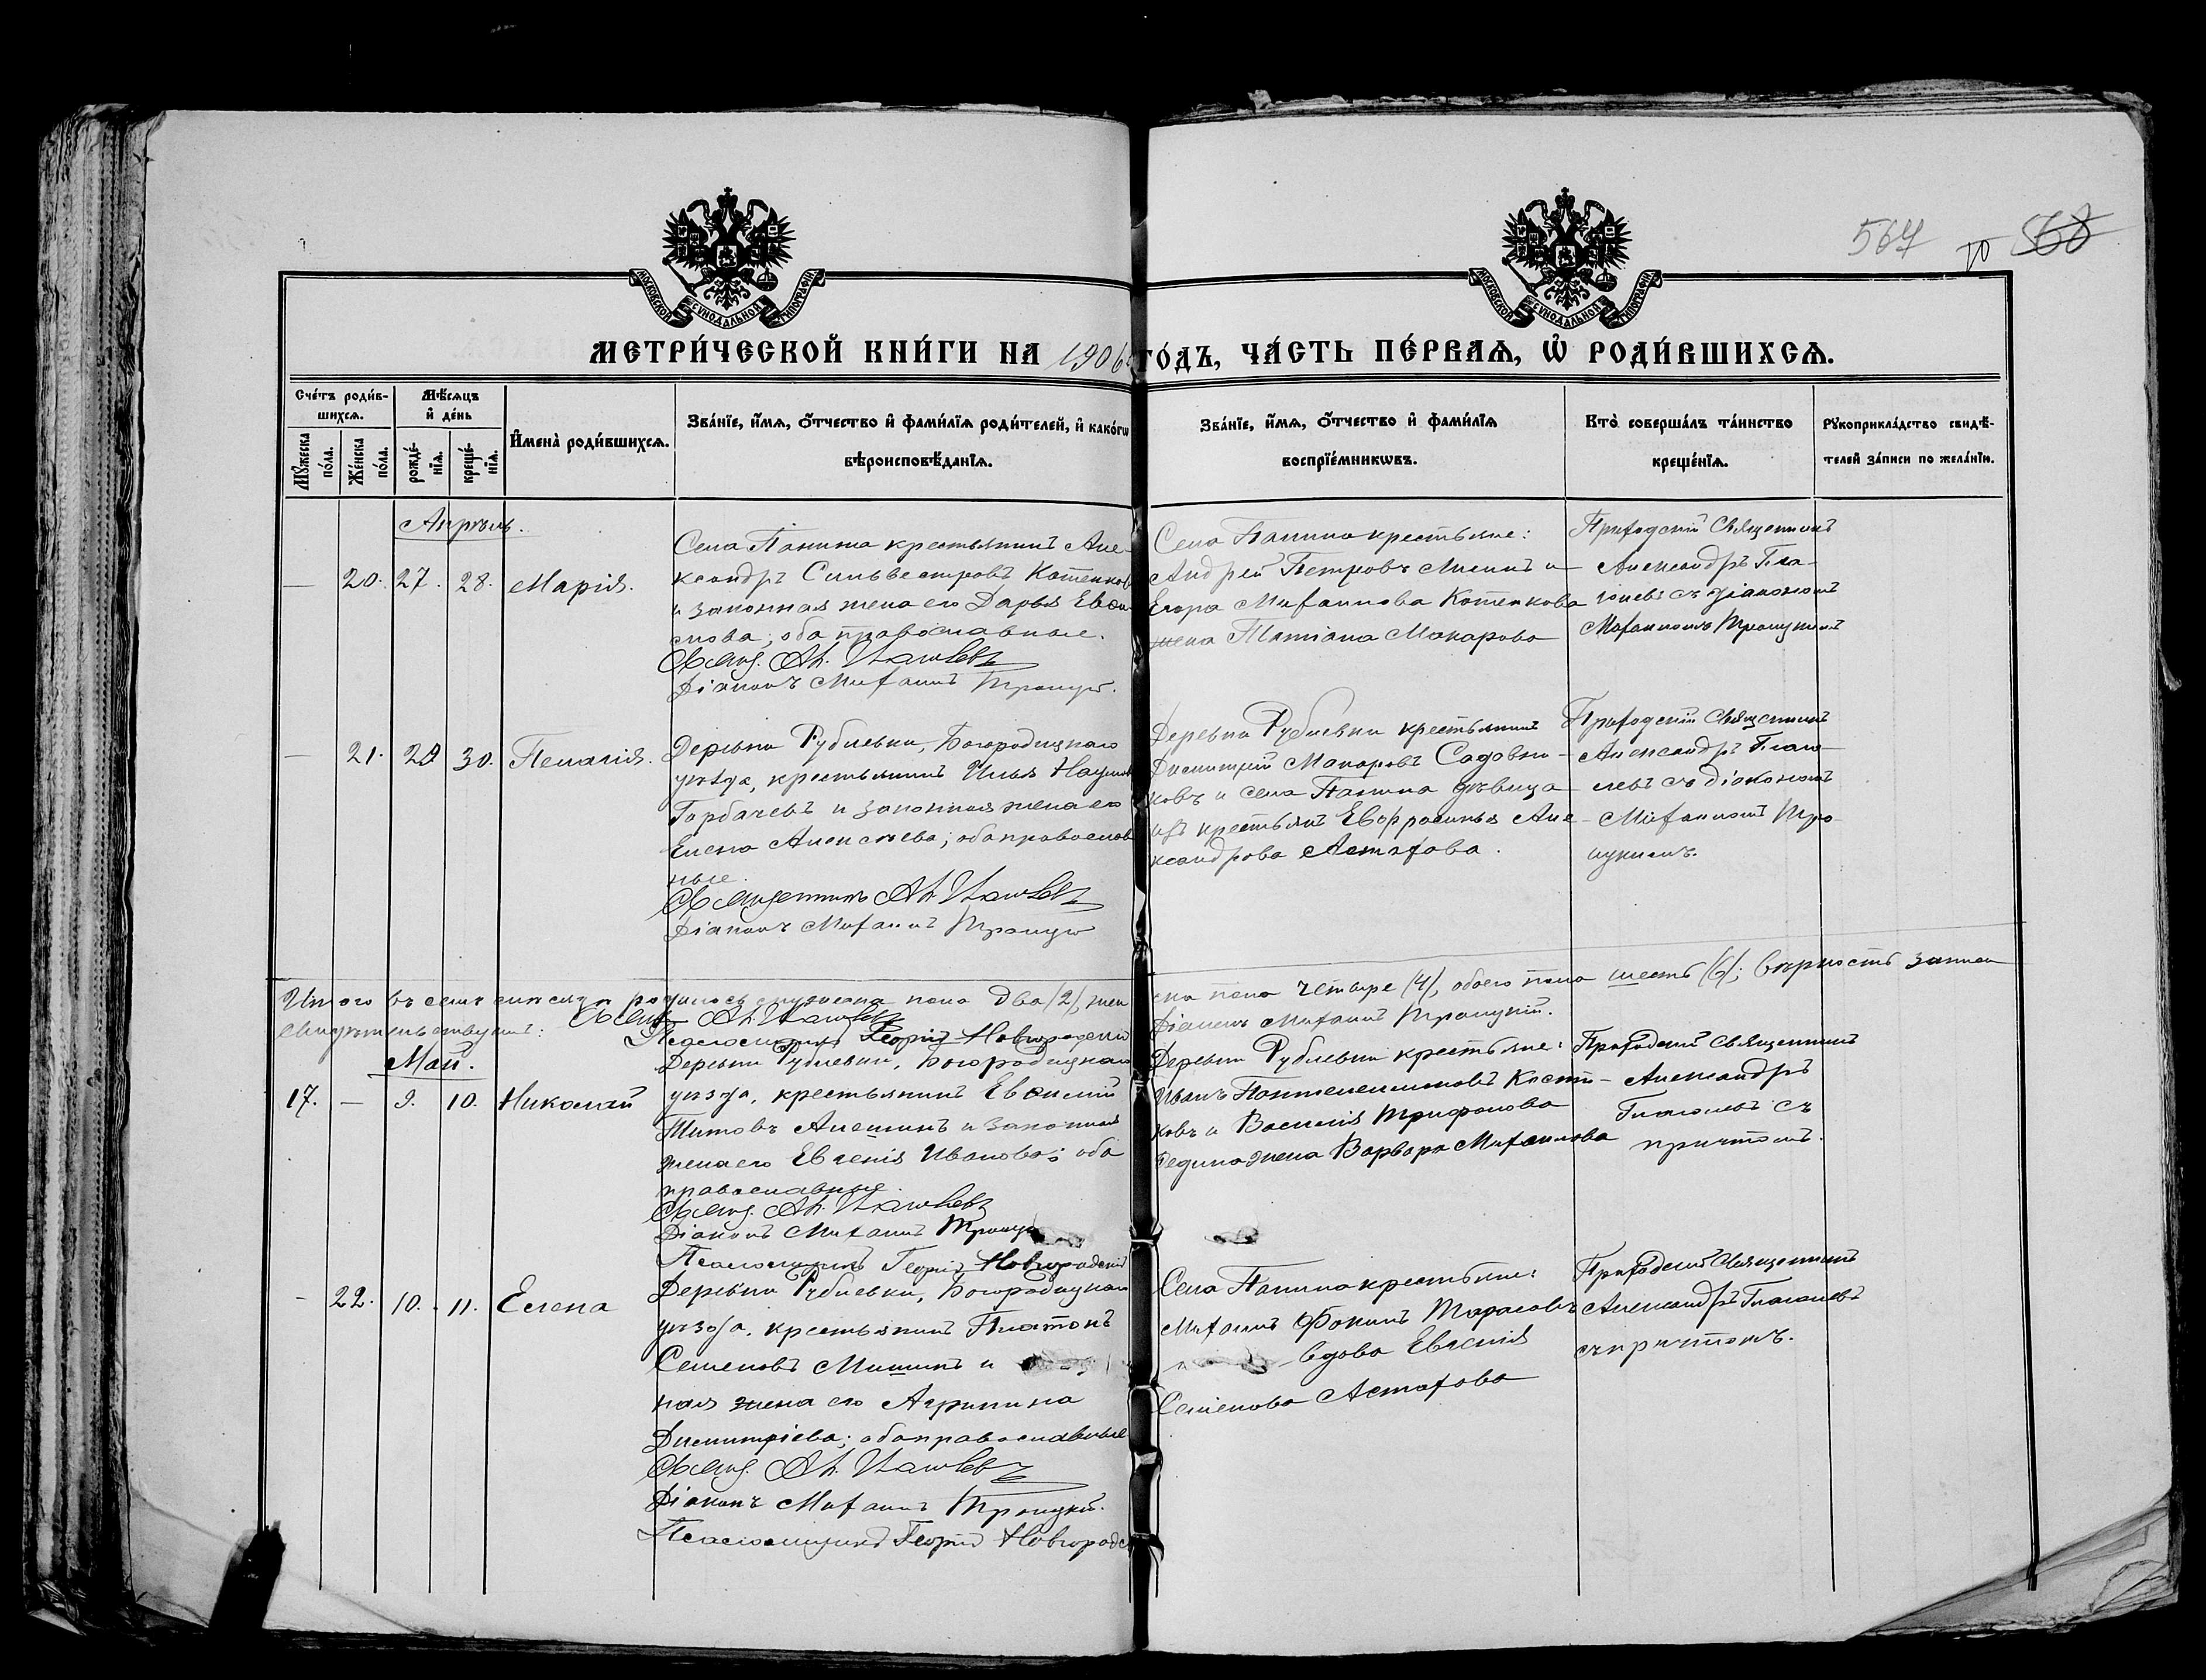 567 10 568
МОСКОВСКОЙ СУНОДАЛЬНОЙ ТИПОГРАФІИ
МОСКОВСКОЙ СУНОДАЛЬНОЙ ТИПОГРАФІИ
МЕТРИ́ЧЕСКОЙ КНИ́ГИ НА 1906 ГО́ДЪ, ЧА́СТЬ ПЕ́РВАѦ, Ѡ҆ РОДИ́ВШИХСѦ.
Сче́тъ роди́в-
шихсѧ.
Мѣ́сѧцъ
и҆ де́нь
Мꙋ́жеска
по́ла.
Же́нска
по́ла.
рожде́-
нїѧ.
креще́-
нїѧ.
И҆мена̀ роди́вшихсѧ.
Зва́нїе, и҆́мѧ, ѻ҆́тчество и҆ фами́лїѧ роди́телей, и҆ како́гѡ
вѣроисповѣ́данїѧ.
Зва́нїе, и҆́мѧ, ѻ҆́тчество и҆ фами́лїѧ
воспрїе́мникѡвъ.
Кто̀ соверша́лъ та́инство
креще́нїѧ.
Рꙋкоприкла́дство свидѣ́-
телей за́писи по жела́нїю.
Апрѣль.
— 20. 27. 28. Марія.
Села Панина крестьянинъ Але-
ксандръ Сильвестровъ Котенков
и законная жена его Дарья Евѳи-
мова; оба православные.
Діаконъ Михаилъ Троицк.
Села Панина крестьяне:
Андрей Петровъ Лисинъ и
Егора Михаилова Котенкова
жена Татіана Макарова
Приходскій Священникъ
Александръ Гла-
голевъ съ діакономъ
Михаиломъ Троицкимъ
— 21. 29 30. Пелагія.
Деревни Рублевки, Богородицкаго
уѣзда, крестьянинъ Илья Наумов
Горбачевъ и законная жена его
Елена Алексѣева; оба православ
ные.
Священникъ Ал. Глаголевъ
Діаконъ Михаилъ Троицк
Деревни Рублевки крестьянинъ
Димитрій Макаровъ Садовни-
ковъ и села Панина дѣвица
изъ крестьянъ Евфросинья Але-
ксандрова Астахова.
Приходскій Священникъ
Александръ Глаго-
левъ съ діакономъ
Михаиломъ Тро-
ицкимъ.
Итого въ семъ мѣсяцѣ родилось мужеска пола два /2/, жен
ска пола четыре /4/, обоего пола шесть /6/; вѣрность записи
свидѣтельствуютъ: Свящ. Ал. Глаголевъ
Діаконъ Михаилъ Троицкій.
Псаломщикъ Георгій Новгородскій
Май.
17. — 9. 10. Николай
Деревни Рублевки, Богородицкаго
уѣзда, крестьянинъ Евѳимій
Титовъ Алешинъ и законная
жена его Евгенія Иванова; оба
православные.
Свящ. Ал. Глаголевъ
Діаконъ Михаилъ Троицк
Псаломщикъ Георгій Новгородскій
Деревни Рублевки крестьяне:
Иванъ Пантелеимоновъ Кости-
ковъ и Василія Трифонова
жена Варвара Михаилова
Приходскій Священникъ
Александръ
Глаголевъ съ
причтомъ.
— 22. 10. 11. Елена
Деревни Рублевки, Богородицкаго
уѣзда, крестьянинъ Платонъ
Семеновъ Мишинъ и
ная жена его Агрипина
Димитріева; оба православные
Свящ. Ал. Глаголевъ
Діаконъ Михаилъ Троицкій.
Псаломщикъ Георгій Новгородс
Села Панина крестьяне:
Михаилъ Фокинъ Тарасовъ
вдова Евгенія
Семенова Астахова
Приходскій Священникъ
Александръ Глаголевъ
съ причтомъ.